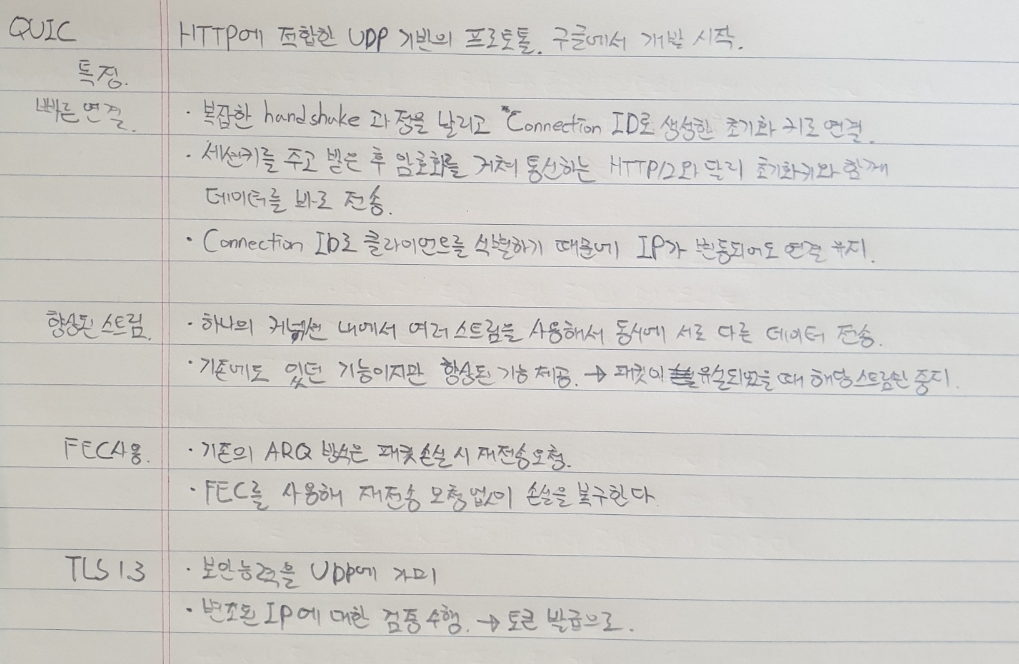 QUIC HTTP에 적합한 UDP 기반의 프로토콜. 구글에서 개발 시작.
특징.
빠른 연결. · 복잡한 handshake 과정을 날리고 *Connection ID로 생성한 초기화 키로 연결.
· 세션키를 주고 받은 후 암호화를 거쳐 통신하는 HTTP/2와 달리 초기화키와 함께
데이터를 바로 전송.
· Connection ID로 클라이언트를 식별하기 때문에 IP가 변동되어도 연결 유지.
향상된 스트림. · 하나의 커넥션 내에서 여러 스트림을 사용해서 동시에 서로 다른 데이터 전송.
· 기존에도 있던 기능이지만 향상된 기능 제공. → 패킷이 유실되었을 때 해당 스트림만 중지.
FEC사용. · 기존의 ARQ 방식은 패킷 손실 시 재전송 요청.
· FEC를 사용해 재전송 요청 없이 손실을 복구한다.
TLS 1.3 · 보안능력을 UDP에 가미
· 변조된 IP에 대한 검증 수행. → 토큰 발급으로.